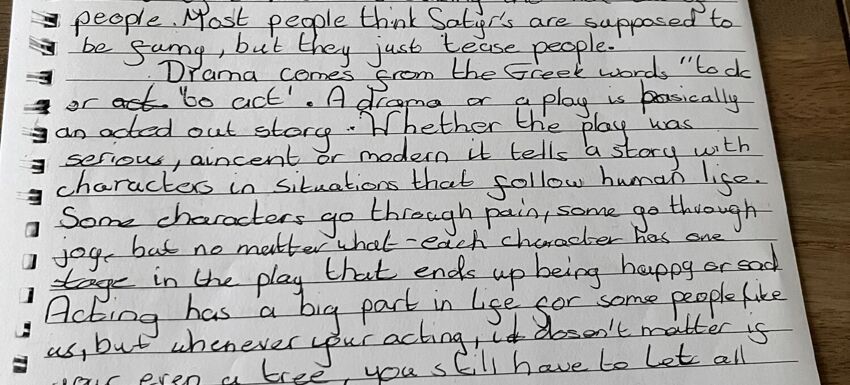 people. Most people think Satyr's are supposed to
be funny, but they just tease people.
Drama comes from the Greek words "to do
or act "to act'. A drama or a play is basically
an acted out story. Whether the play was
serious, aincent or modern it tells a story with
characters in situations that follow human life.
Some characters go through pain, some go through
joy, but no matter what - each character has one
stage in the play that ends up being happy or sad
Acting has a big part in life for some people like
us, but whenever your acting, it doesn't matter if
your even a tree, you still have to let all